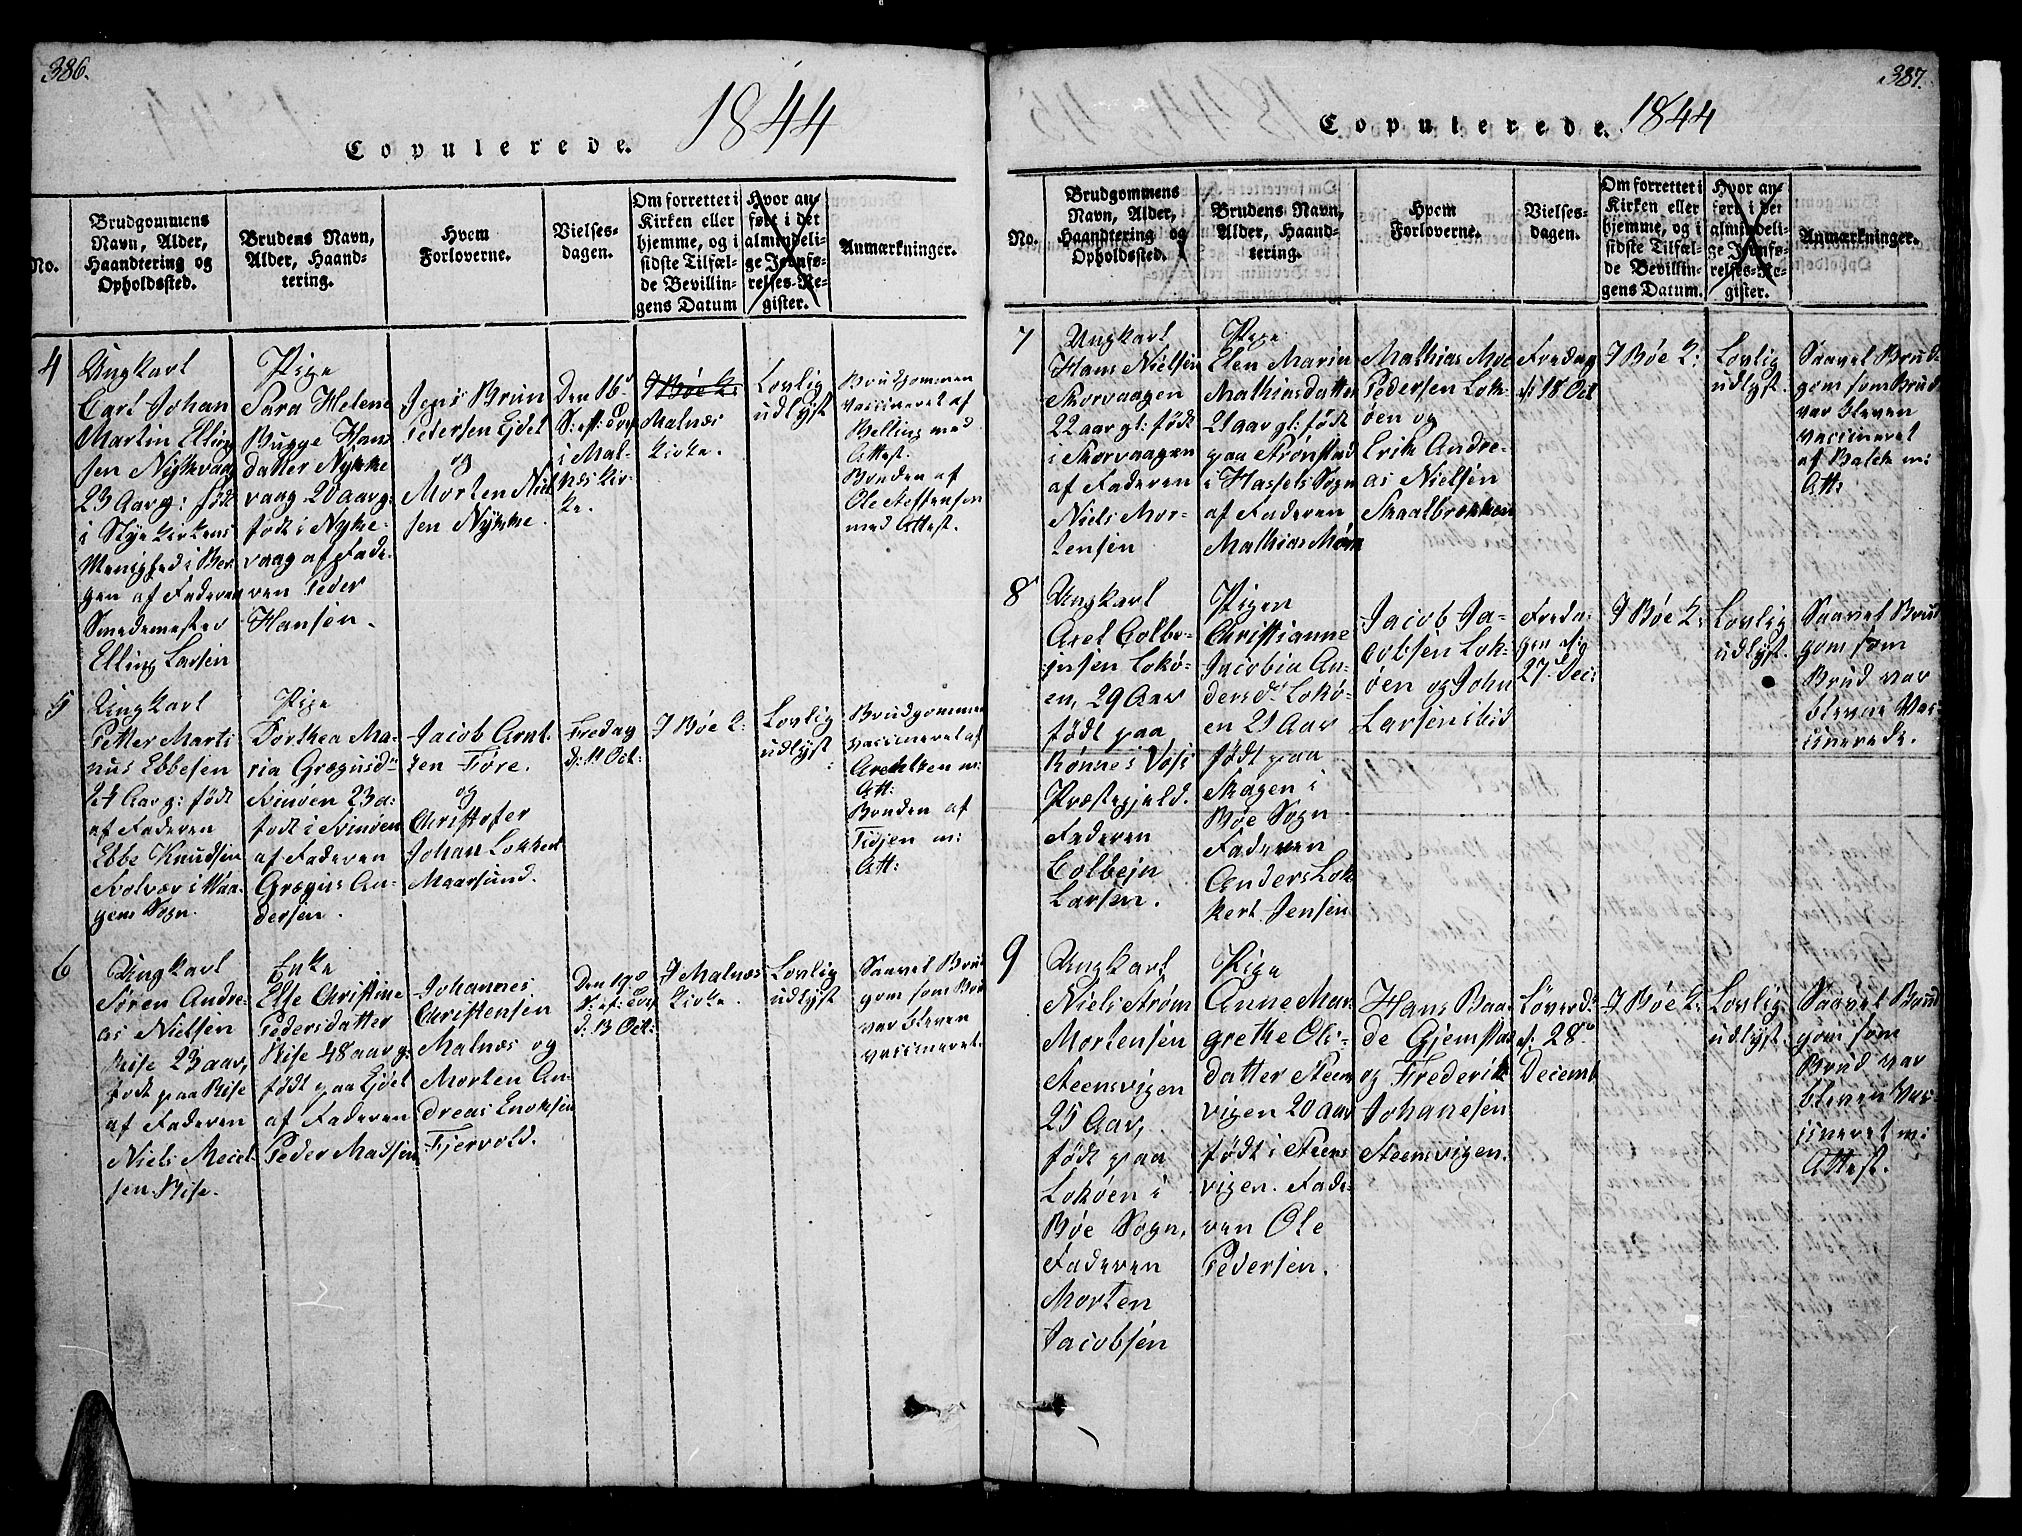 386.
Copulerede. 1844
No.
Brudgommens
Navn, Alder,
Haandtering og
Opholdssted.
Brudens Navn,
Alder, Haand-
tering.
Hvem
Forloverne.
Vielses-
dagen.
Om forrettet i
Kirken eller
hjemme, og i
sidste Tilfæl-
de Bevillin-
gens Datum
Hvor an-
ført i det
almindeli-
ge Jevnfø-
relses-Re-
gister.
Anmærkninger.
4
Ungkarl
Carl Johan
Martin Elling
sen Nykvaag
23 Aar g: født
i
Menighed i Ber
gen af Faderen
Smedemester
Elling Larsen
Pige
Sara Helene
Bugge Hans
datter Nykke
vaag 20 aar g:
født i Nyke-
vaag af Fade-
ren Peder
Hansen.
Jens Brun
Petersen Eidet
og
Morten Niel
sen Nykke.
Den 16d
S: eft: Trf
i Mal-
næs Kir-
ke.
I Bøe K:
Malnæs
Kirke.
Lovlig
udlyst
Brudgommen
vaccineret af
Belling med
Attest.
Bruden af
Ole Steffensen
med Attest.
5
Ungkarl
Petter Marti
nus Ebbesen
24 Aar g: født
af Faderen
Ebbe Knudsen
Svolvær i Vaa-
gens Sogn.
Pige
Dorthea Ma-
ria Grægusdr
Svinøen 23 a:
født i Svinøen
af Faderen
Grægus An-
dersen.
Jacob Arnt-
sen Føre.
og
Christofer
Johan Lokkert
Maarsund.
Fredag
d: 11 Oct:
I Bøe K:
Lovlig
udlyst
Brudgommen
vaccineret af
m:
Att:
Bruden af
m:
Att:
6
Ungkarl
Søren Andre-
as Nielsen
Rise 23 aar,
født paa Rise
af Faderen
Niels Meiel-
sen Rise.
Enke
Else Christine
Pedersdatter
Rise 48 aar g:
født paa Eidet
af Faderen
Peder Madsen
Johannes
Christensen
Malnæs og
Morten An-
dreas Enoksen
Fjervold.
Den 19de
S: ef: Trf
d: 13 Oct:
I Malnæs
Kirke.
Lovlig
udlyst
Saavel Brud
gom som Bru
var bleven
vaccineret.
387.
Copulerede. 1844
No.
Brudgommens
Navn, Alder,
Haandtering og
Opholdssted.
Brudens Navn,
Alder, Haand-
tering.
Hvem
Forloverne.
Vielses-
dagen.
Om forrettet i
Kirken eller
hjemme, og i
sidste Tilfæl-
de Bevillin-
gens Datum.
Hvor an-
ført i det
almindeli-
ge Jevnfø-
relses-Re-
gister.
Anmærkninger.
7
Ungkarl
Hans Nielsen
Skorvaagen
22 aar gl: født
i Skorvaagen
af Faderen
Niels Mor-
tensen
Pige
Elen Marin
Mathiasdatter
21 aar gl: født
paa Strønstad
i Hassels Sogn
af Faderen
Mathias
Mathias
Pedersen Lok-
øen og
Erik Andre-
as Nielsen
Skaalbrekken
Fredag
d: 18 Oct
I Bøe K:
Lovlig
udlyst.
Saavel Brud
gom som Brud
var bleven
vaccineret
af Balch m:
Att:
8
Ungkarl
Axel Colbe-
insen Lokø-
en, 29 Aar
født paa
Rønnes Vosi
Præstegjeld.
Faderen
Colbejn
Larsen.
Pigen
Christianne
Jacobia An-
dersdr Lokø-
en 21 Aar
født paa
Skagen i
Bøe Sogn
Faderen
Anders Lok
kert Jensen
Jacob Ja-
cobsen Lok-
øen og John
Larsen ibid
Freda-
gen d:
27 Dec:
I Bøe K:
Lovlig
udlyst.
Saavel Brud
gom som
Brud var
bleven Vac-
cinerede.
9
Ungkarl
Niels Strøm
Mortensen
Steensvigen
25 Aar,
født paa
Lokøen i
Bøe Sogn,
Faderen
Morten
Jacobsen
Pige
Anne Mar-
grethe Ols-
datter Steens
vigen 20 aar
født i Steens
vigen. Fade-
ren Ole
Pedersen.
Hans Baa-
de Gjemstad
og Frederik
Johanesen
Steensvigen.
Løverd:
d: 28de
Decemb
I Bøe K:
Lovlig
udlyst.
Saavel Brud
gom som
Brud var
bleven Vac-
cineret m:
Attest.